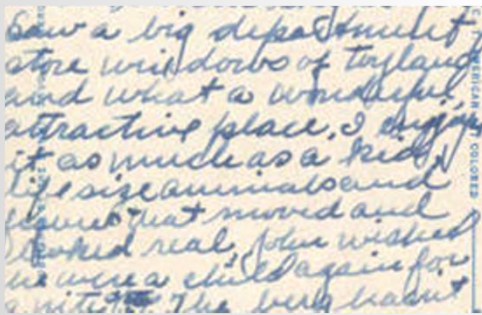 Saw a big department
store windows of toyland
and what a wonderful
attractive place. I enjoy
it as much as a kid,
life size animals and
that moved and
looked real, John wished
he were a child again for
a nite. The
AMERICAN ART COLORED